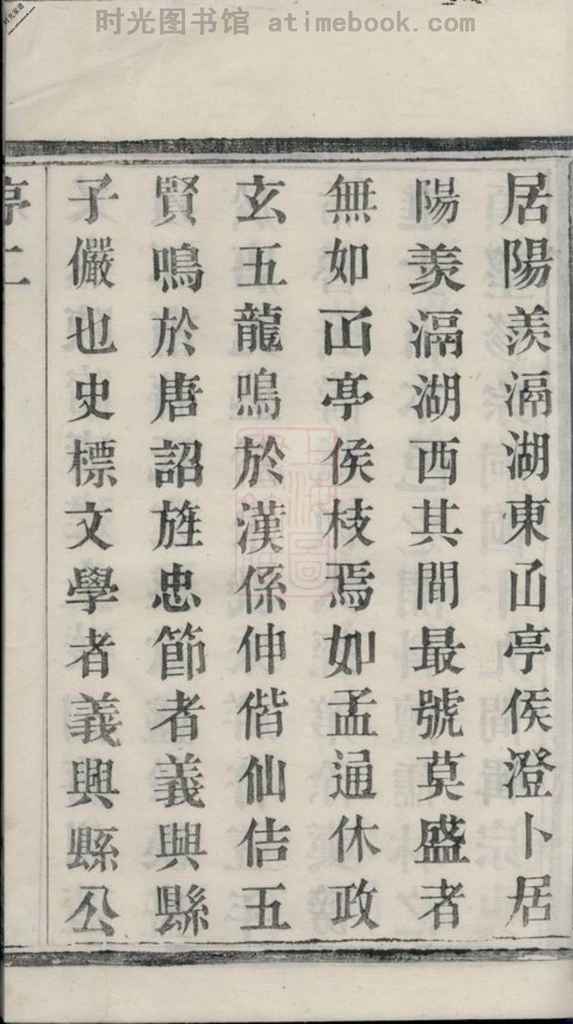 时光图书馆 atimebook.com
居陽羡滆湖東凾亭侯澄卜居
陽羡滆湖西其間最號莫盛者
無如凾亭侯枝焉如孟通休政
玄五龍鳴於漢係仲偕仙佶五
賢鳴於唐詔旌忠節者義興縣
子儼也史標文學者義興縣公
序 二